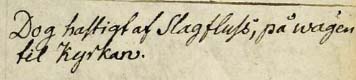 Dog hastigt af Slagfluss, på wägen
til Kyrkan.